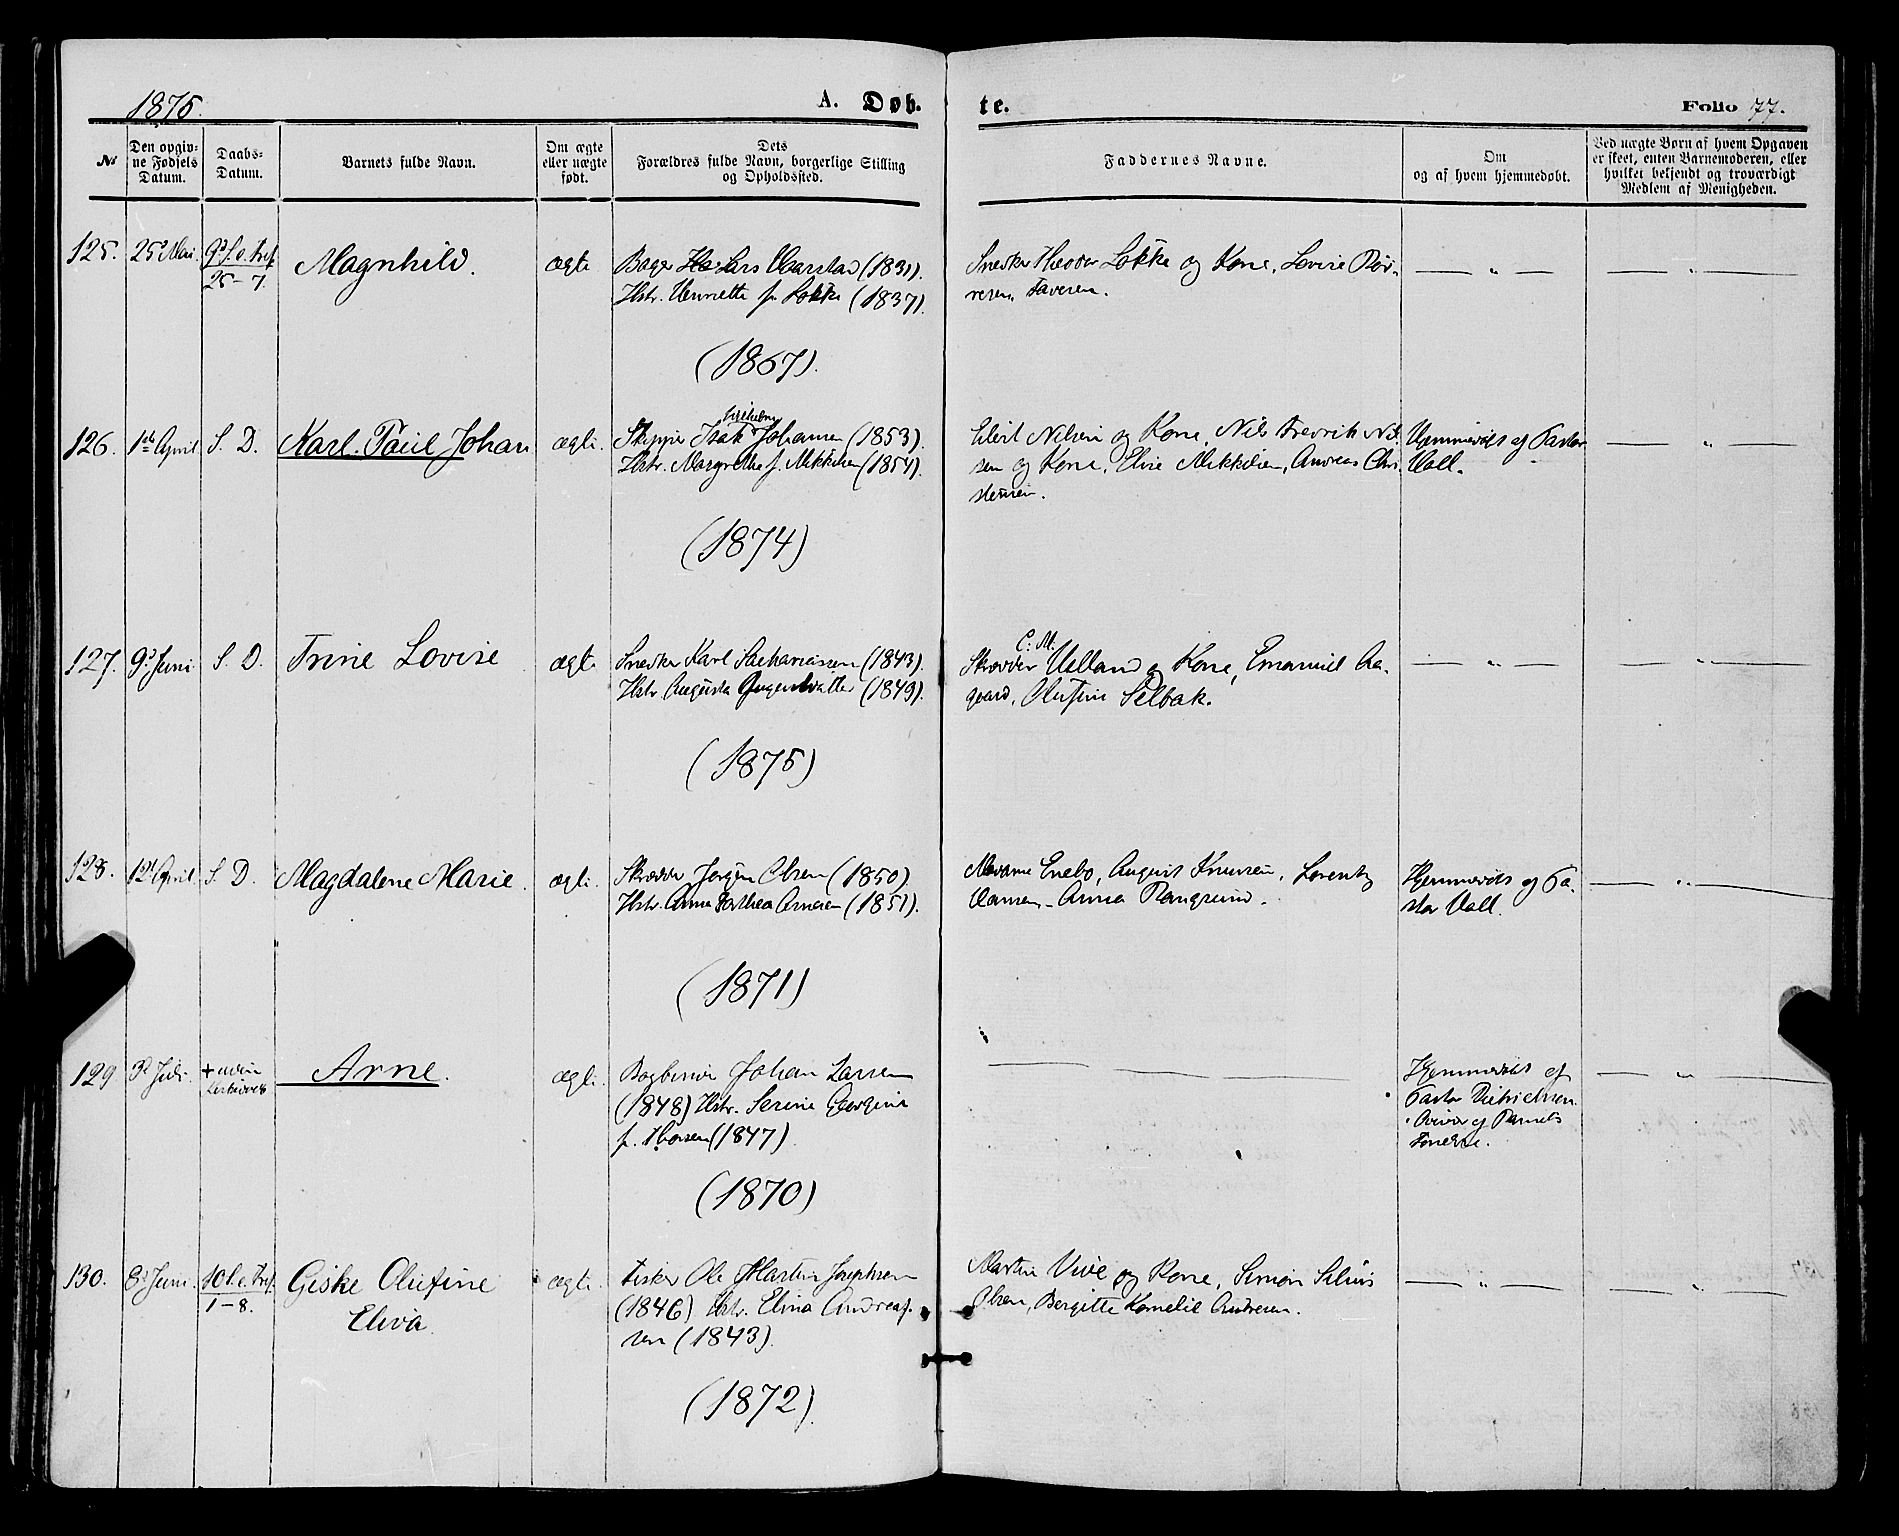 1875.
A. Døb-
te.
Folio 77.
No
Den opgiv-
ne Fødsels
Datum.
Daabs-
Datum.
Barnets fulde Navn.
Om ægte
eller uægte
født.
Dets
Forældres fulde Navn, borgerlige Stilling
og Opholdssted.
Faddernes Navne.
Om
og af hvem hjemmedøbt.
Ved uægte Børn af hvem Opgaven
er skeet, enten Barnemoderen, eller
hvilket bekjendt og troværdigt
Medlem af Menigheden.
125.
25 Mai
9 S. e. Tref.
25-7.
Magnhild.
ægte
Bager Lars Aarstad (1831).
Hstr. Henriette f. Løkke (1837).
(1867).
Snedker Løkke og Kone, Lovise
126.
1 April
S. D.
Karl Paul Johan
ægte.
Skipper Isak Johansen (1853).
Hstr. Margrethe f. Mikkelsen (1854).
(1874)
Eilert Nilsen og Kone, Nils Fredrik Nil-
sen og Kone, Elise Mikkelsen, Andreas Chri-
stensen.
Hjemmedøbt af Pastor
127.
9 Juni
S. D.
Trine Lovise
ægte
Snedker Karl Sachariassen (1843).
Hstr. Augusta (1849).
(1875)
C. M.
Skrædder Uelland og Kone, Emanuel Aa-
gaard, Olufine Selbak.
128.
12 April
S. D.
Magdalene Marie.
ægte.
Skrædder Jørgen Olsen (1850)
Hstr. Anna Arnesen (1851).
(1871)
Madame Enebo, August Knudsen, Lorents
Hansen, Anna
Hjemmedøbt af Pa-
stor
129
3 Juli
Arne.
ægte.
Bogbinder Johan Larsen
(1848) Hstr. Serine Georgine
f. Thorsen (1847).
(1870)
Hjemmedøbt af
Pastor Dietrichson.
130.
8 Juni.
10 S. e. Tref.
1-8.
Giske Olufine
Eliva
ægte.
Fisker Ole Martin Josephsen
(1846) Hstr. Elina Andreas-
sen (1843).
(1872)
Martin Vive og Kone, Simon
Olsen, Bergitte Kornelie Andresen.